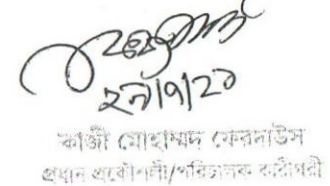 ২৯/৭/২০
কাজী মোহাম্মদ ফেরদাউস
প্রধান প্রকৌশলী/পরিচালক কারীগরী